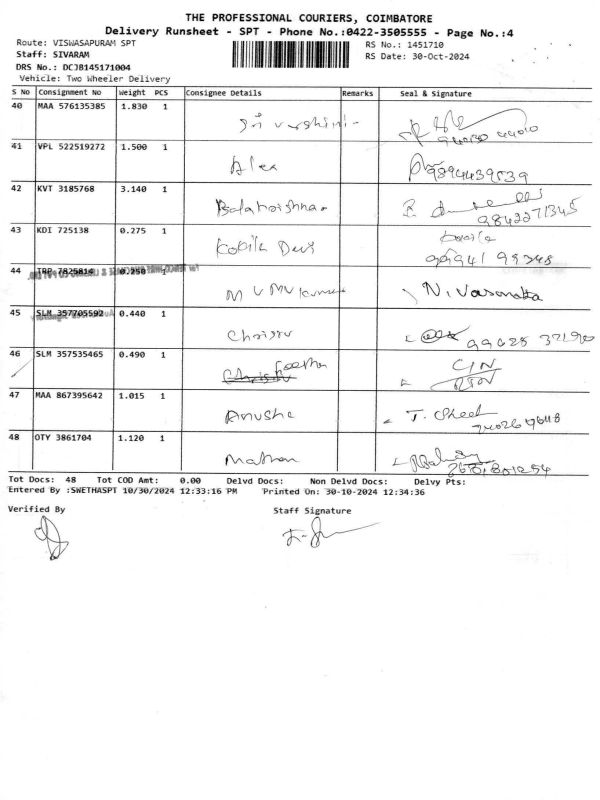 THE PROFESSIONAL COURIERS, COIMBATORE
Delivery Runsheet - SPT - Phone No.:0422-3505555 - Page No.:4
Route: VISWASAPURAM SPT
RS No.: 1451710
Staff: SIVARAM
RS Date: 30-Oct-2024
DRS No.: DCJB145171004
Vehicle: Two Wheeler Delivery
S No Consignment No Weight PCS Consignee Details Remarks Seal & Signature
40 MAA 576135385 1.830 1
41 VPL 522519272 1.500 1 Alex 9894439539
42 KVT 3185768 3.140 1 Balakrishnan 9842271345
43 KDI 725138 0.275 1 Kokila Devi
44 TRP 7825814 0.250 1 N. Vasantha
45 SLM 357705592 0.440 1
46 SLM 357535465 0.490 1
47 MAA 867395642 1.015 1 Anusha
48 OTY 3861704 1.120 1
Tot Docs: 48 Tot COD Amt: 0.00 Delvd Docs: Non Delvd Docs: Delvy Pts:
Entered By :SWETHASPT 10/30/2024 12:33:16 PM Printed On: 30-10-2024 12:34:36
Verified By Staff Signature